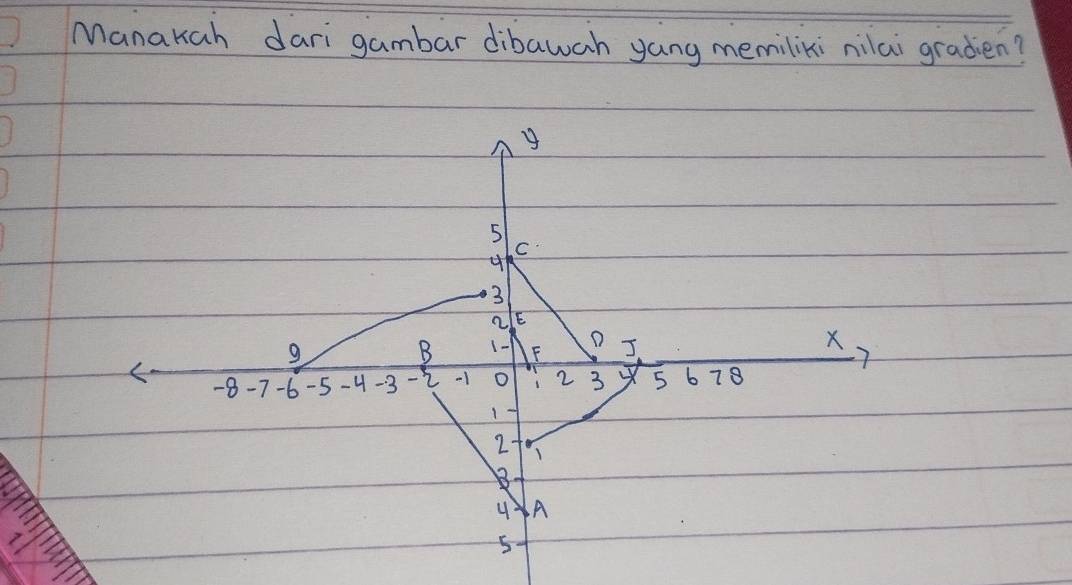 Manakah dari gambar dibawah yang memiliki nilai gradien?
y
5
C
4
3
2 E
1
g B F D J x
-8 -7 -6 -5 -4 -3 -2 -1 0 1 2 3 4 5 6 7 8
1
2 i
3
4 A
5